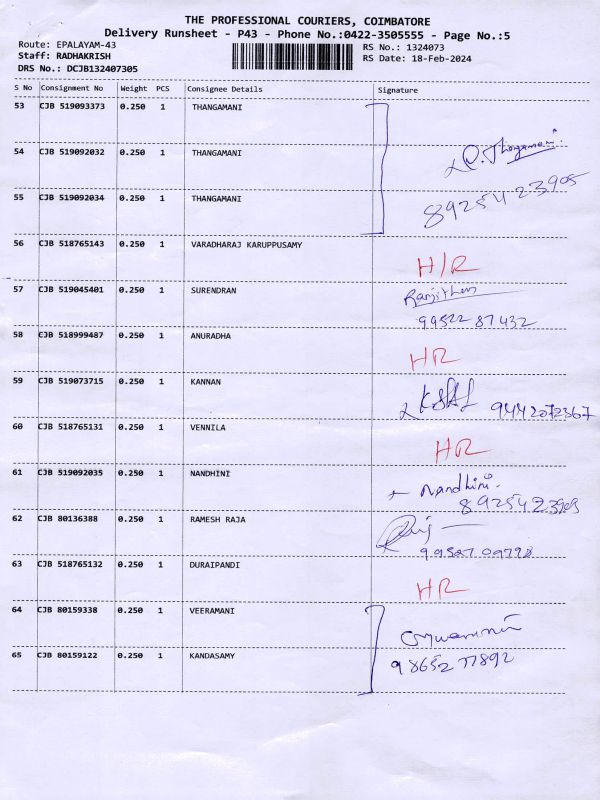 THE PROFESSIONAL COURIERS, COIMBATORE
Delivery Runsheet - P43 - Phone No.:0422-3505555 - Page No.:5
Route: EPALAYAM-43
RS No.: 1324073
Staff: RADHAKRISH
RS Date: 18-Feb-2024
DRS No.: DCJB132407305
S No Consignment No Weight PCS Consignee Details Signature
53 CJB 519093373 0.250 1 THANGAMANI
54 CJB 519092032 0.250 1 THANGAMANI
55 CJB 519092034 0.250 1 THANGAMANI 8925423905
56 CJB 518765143 0.250 1 VARADHARAJ KARUPPUSAMY H/R
57 CJB 519045401 0.250 1 SURENDRAN
99522 87432
58 CJB 518999487 0.250 1 ANURADHA HR
59 CJB 519073715 0.250 1 KANNAN 9442072367
60 CJB 518765131 0.250 1 VENNILA HR
61 CJB 519092035 0.250 1 NANDHINI Nandhini
62 CJB 80136388 0.250 1 RAMESH RAJA
63 CJB 518765132 0.250 1 DURAIPANDI HR
64 CJB 80159338 0.250 1 VEERAMANI
65 CJB 80159122 0.250 1 KANDASAMY 98652 77892